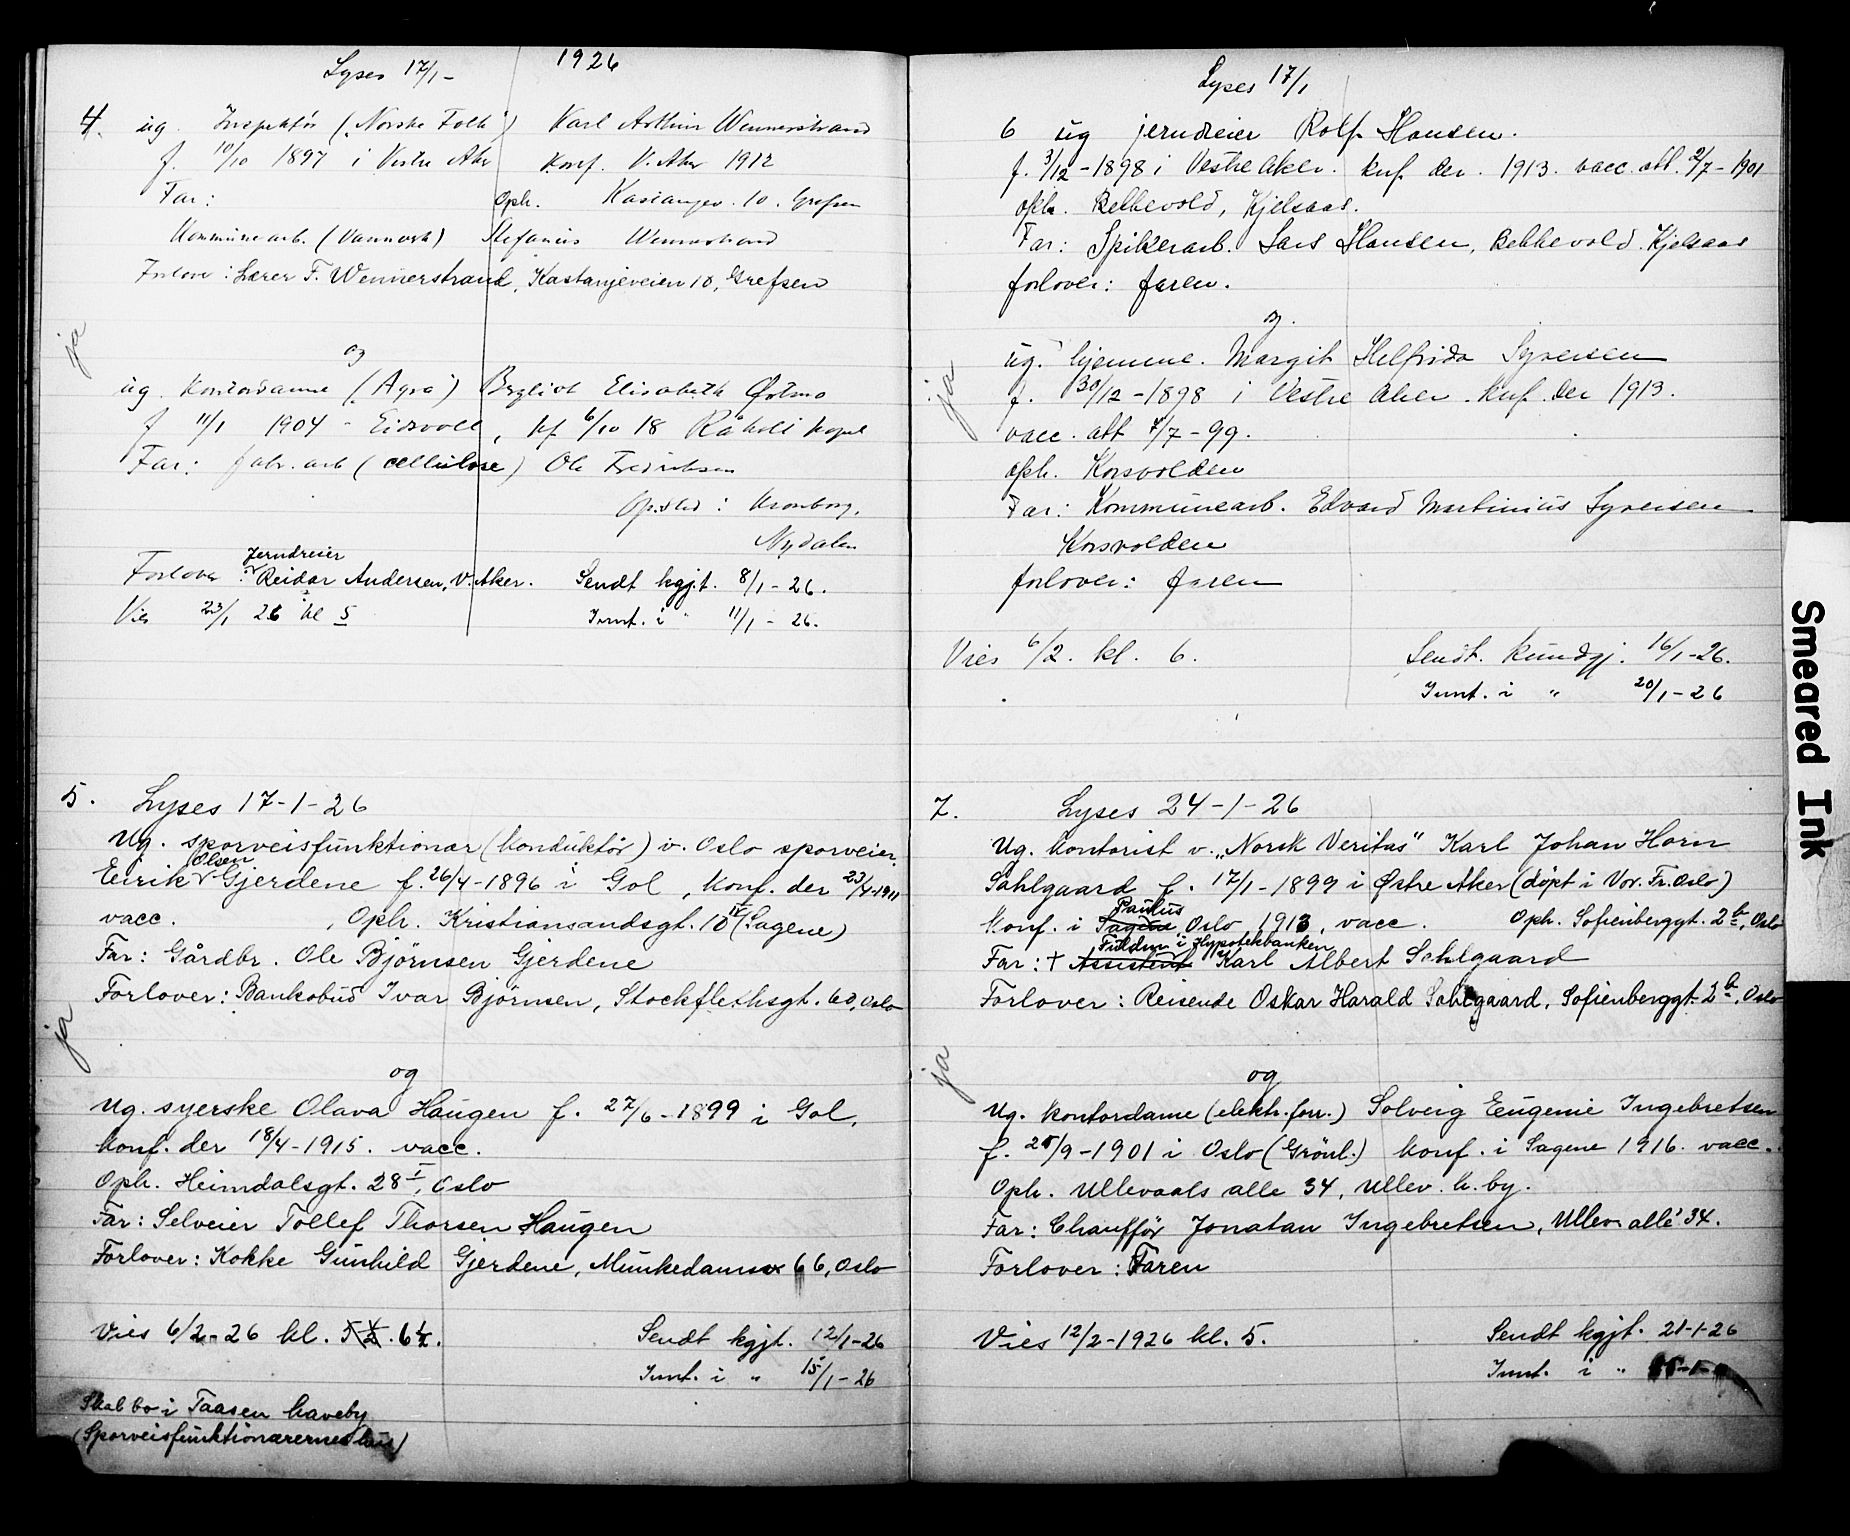 1926
Lyses 17/1 -
4. ug. Inspektør ("Norske Folk") Karl Arthur Wennerstrand
f. 10/10 1897 i Vestre Aker konf. V. Aker 1912
Far: Oph. Kastanjev. 10. Grefsen
Kommunearb. (Vannverk) Stefanus Wennerstrand
Forlover: Lærer F. Wennerstrand, Kastanjeveien 10, Grefsen
ja
og
ug. Kontordame ("Agra") Bergliot Elisabeth Østmo
f 11/1 1904 - Eidsvoll, kf 6/10 18 Råholt kapel
Far: fabr. arb (cellulose) Ole Fredriksen
Op.sted: Kronborg,
Nydalen
Jerndreier
Forlover: Reidar Andersen, V. Aker. Sendt kgjt. 8/1 - 26.
Vies 23/1 26 kl 5 Innt. i " 11/1 - 26.
5. Lyses 17-1-26
Ug. sporveisfunktionær (konduktør) v. Oslo sporveier.
Olsen
Eirik Gjerdene f. 26/4-1896 i Gol, konf. der 23/4-1911
vacc. , Oph. Kristiansandsgt. 10 IV (Sagene)
Far: Gårdbr. Ole Bjørnsen Gjerdene
Forlover: Bankobud Ivar Bjørnsen, Stockflethsgt. 60, Oslo
ja
og
Ug. syerske Olava Haugen f. 27/6-1899 i Gol,
konf. der 18/4-1915. vacc.
Oph. Heimdalsgt. 28 I, Oslo
Far: Selveier Tollef Thorsen Haugen
Forlover: Kokke Gunhild Gjerdene, Munkedamsv 66, Oslo
Vies 6/2-26 kl. 5 1/2. 6 1/2. Sendt kgjt. 12/1-26
Innt. i " 15/1-26
Skal bo i Taasen haveby
(Sporveisfunktionærernes hus)
Lyses 17/1
6 ug jerndreier Rolf Hansen.
f. 3/12-1898 i Vestre Aker. knf. der. 1913. vacc. att. 2/7-1901
oph. Bekkevold, Kjelsaas.
Far: Spikerarb. Lars Hansen, Bekkevold. Kjelsaas
forlover: faren.
ja
og.
ug. hjemme. Margit Helfrida Syversen
f. 30/12-1898 i Vestre Aker. knf. der 1913.
vacc. att 4/7-99.
oph. Korsvolden
Far: Kommunearb. Edvard Martinius Syversen
Korsvolden
forlover: faren
Vies 6/2. kl. 6. Sendt. kundgj. 16/1-26.
Innt. i " 20/1-26
7. Lyses 24-1-26
Ug. kontorist v. "Norsk Veritas" Karl Johan Horn
Sahlgaard f. 17/1-1899 i Østre Aker (döpt i Vor. Fr. Oslo)
Paulus
konf. i Sagene, Oslo, 1913, vacc. Oph. Sofienberggt. 2 b, Oslo
Fuldm. i Hypotekbanken
Far: † Assistent Karl Albert Sahlgaard
Forlover: Reisende Oskar Harald Sahlgaard, Sofienberggt. 2 b, Oslo
ja
og
Ug. kontordame (elektr. forr.) Solveig Eugenie Ingebretsen
f. 25/9-1901 i Oslo (Grönl.) konf. i Sagene 1916. vacc.
Oph. Ullevaals alle 34, Ullev. h. by.
Far: Chauffør Jonatan Ingebretsen, Ullev. allé 34.
Forlover: Faren
Vies 12/2-1926 kl. 5. Sendt kgjt. 21-1-26
Innt. i "
Smeared Ink